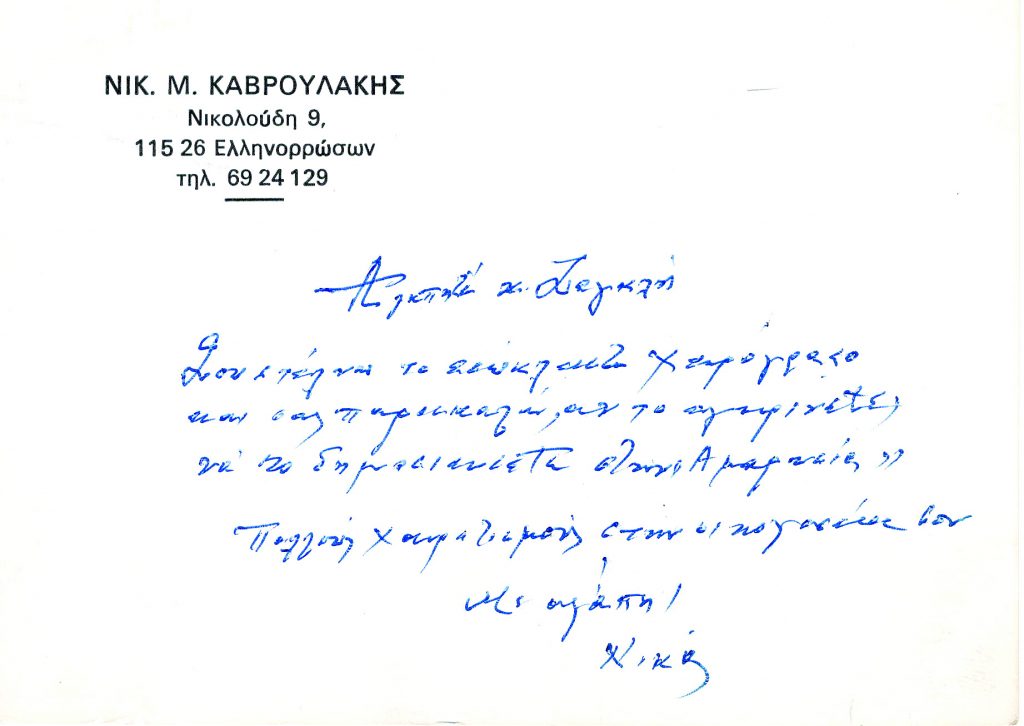 ΝΙΚ. Μ. ΚΑΒΡΟΥΛΑΚΗΣ
Νικολούδη 9,
115 26 Ελληνορρώσων
τηλ. 69 24 129
Αγαπητέ κ.
Σου στέλνω το χειρόγραφο
και σας παρακαλώ, αν το εγκρίνετε,
νά το δημοσιεύσετε στην «Αμαρυσία»
Πολλούς χαιρετισμούς στην οικογένειά σου
Με αγάπη!
Νίκος